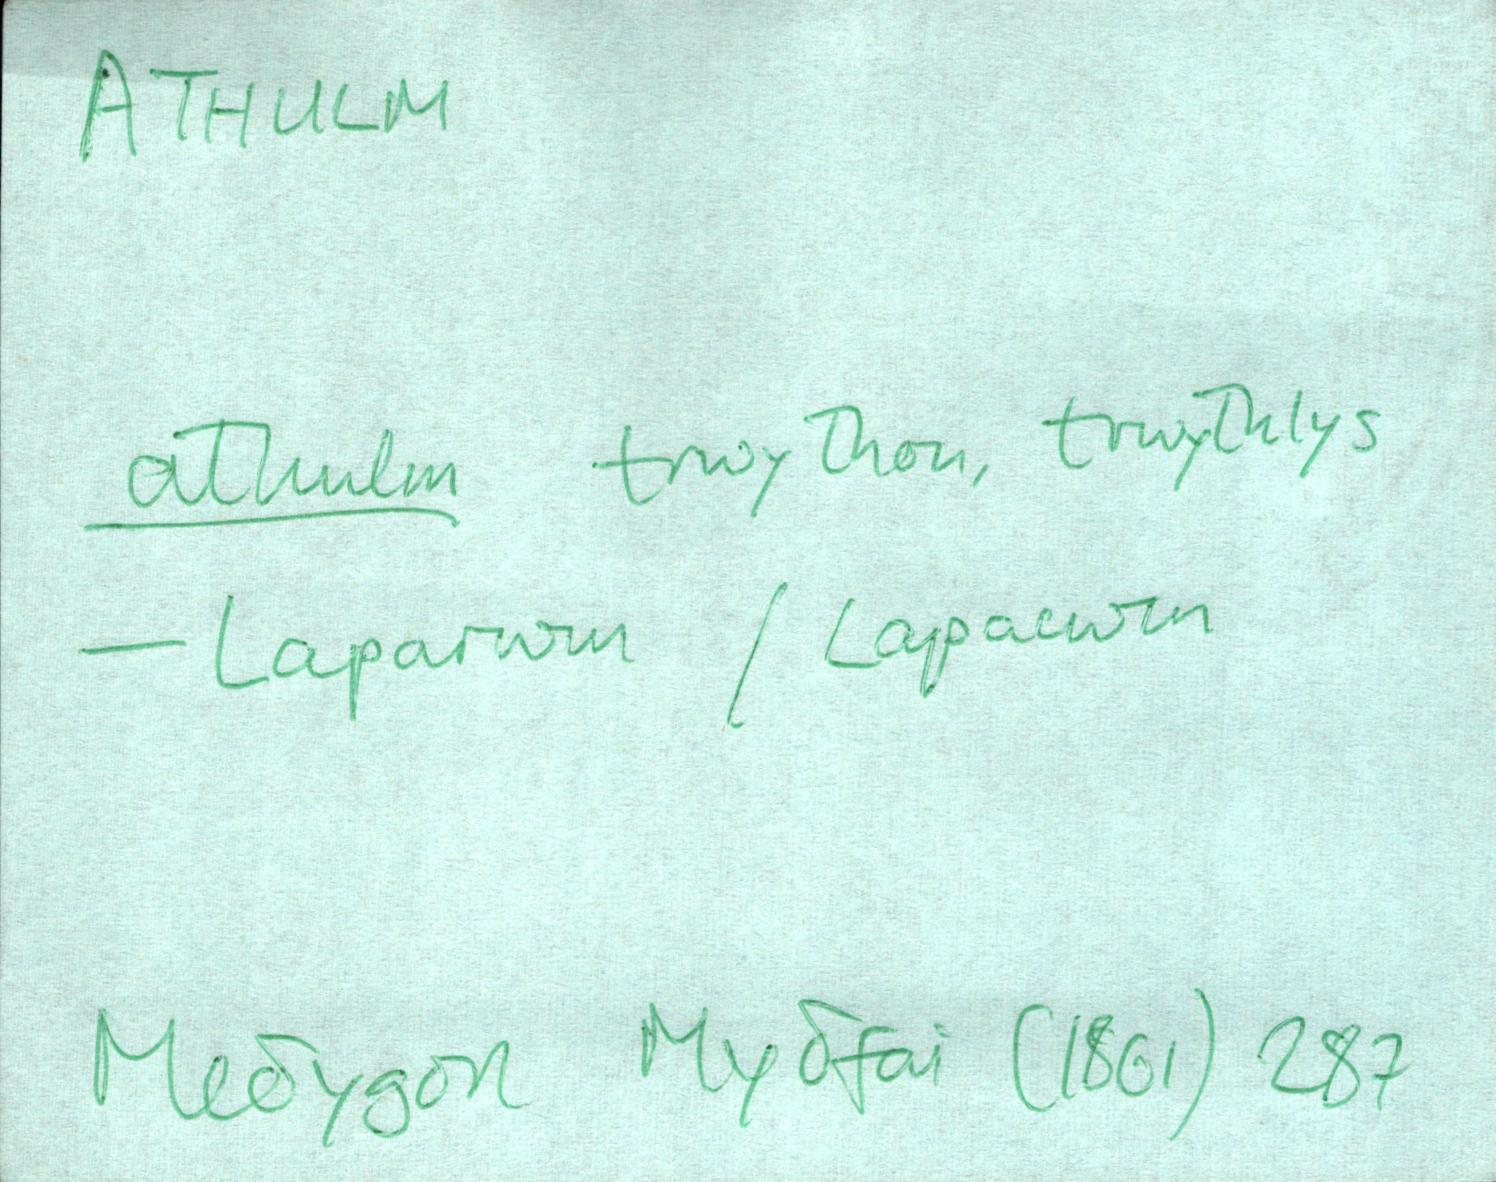 ATHULM
athulm trwython, trwythlys
— Laparwm / Lapacwm
Meδygon Myδfai (1861) 287